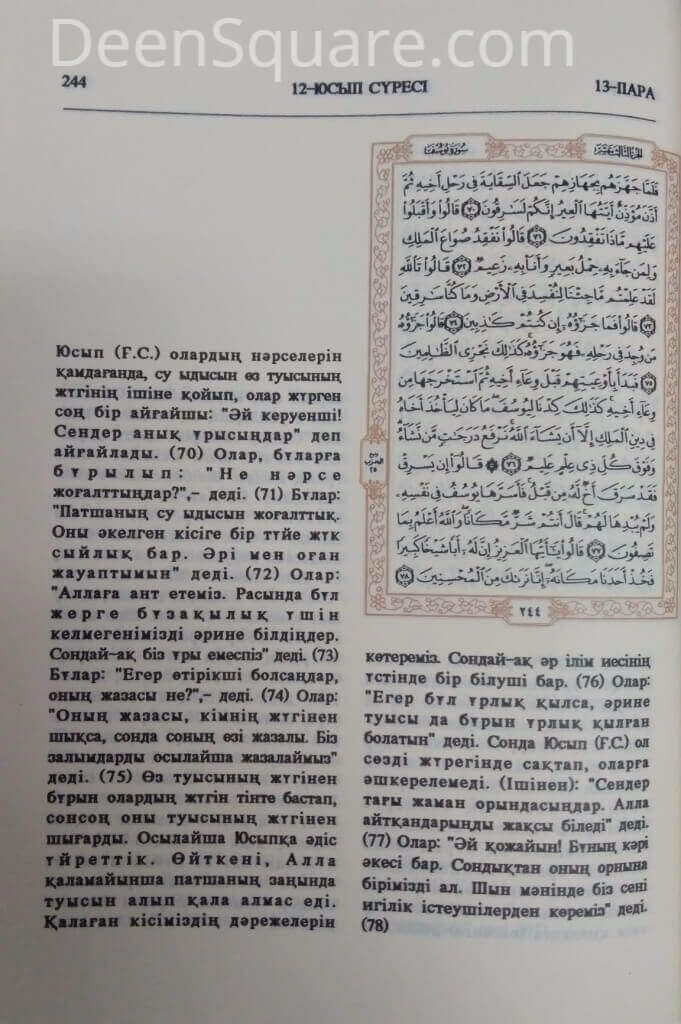 DeenSquare.com
244
12-ЮСЫП СҮРЕСІ
13-ПАРА
سورة يوسف
الجزء الثالث عشر
فَلَمَّا جَهَّزَهُم بِجَهَازِهِمْ جَعَلَ ٱلسِّقَايَةَ فِى رَحْلِ أَخِيهِ ثُمَّ
أَذَّنَ مُؤَذِّنٌ أَيَّتُهَا ٱلْعِيرُ إِنَّكُمْ لَسَٰرِقُونَ ٧٠ قَالُوا۟ وَأَقْبَلُوا۟
عَلَيْهِم مَّاذَا تَفْقِدُونَ ٧١ قَالُوا۟ نَفْقِدُ صُوَاعَ ٱلْمَلِكِ
وَلِمَن جَآءَ بِهِۦ حِمْلُ بَعِيرٍ وَأَنَا۠ بِهِۦ زَعِيمٌ ٧٢ قَالُوا۟ تَٱللَّهِ
لَقَدْ عَلِمْتُم مَّا جِئْنَا لِنُفْسِدَ فِى ٱلْأَرْضِ وَمَا كُنَّا سَٰرِقِينَ
٧٣ قَالُوا۟ فَمَا جَزَٰٓؤُهُۥٓ إِن كُنتُمْ كَٰذِبِينَ ٧٤ قَالُوا۟ جَزَٰٓؤُهُۥ
مَن وُجِدَ فِى رَحْلِهِۦ فَهُوَ جَزَٰٓؤُهُۥ كَذَٰلِكَ نَجْزِى ٱلظَّٰلِمِينَ
٧٥ فَبَدَأَ بِأَوْعِيَتِهِمْ قَبْلَ وِعَآءِ أَخِيهِ ثُمَّ ٱسْتَخْرَجَهَا مِن
وِعَآءِ أَخِيهِ كَذَٰلِكَ كِدْنَا لِيُوسُفَ مَا كَانَ لِيَأْخُذَ أَخَاهُ
فِى دِينِ ٱلْمَلِكِ إِلَّآ أَن يَشَآءَ ٱللَّهُ نَرْفَعُ دَرَجَٰتٍ مَّن نَّشَآءُ
وَفَوْقَ كُلِّ ذِى عِلْمٍ عَلِيمٌ ٧٦ قَالُوٓا۟ إِن يَسْرِقْ
فَقَدْ سَرَقَ أَخٌ لَّهُۥ مِن قَبْلُ فَأَسَرَّهَا يُوسُفُ فِى نَفْسِهِۦ
وَلَمْ يُبْدِهَا لَهُمْ قَالَ أَنتُمْ شَرٌّ مَّكَانًا وَٱللَّهُ أَعْلَمُ بِمَا
تَصِفُونَ ٧٧ قَالُوا۟ يَٰٓأَيُّهَا ٱلْعَزِيزُ إِنَّ لَهُۥٓ أَبًا شَيْخًا كَبِيرًا
فَخُذْ أَحَدَنَا مَكَانَهُۥٓ إِنَّا نَرَىٰكَ مِنَ ٱلْمُحْسِنِينَ ٧٨
٢٤٤
Юсып (Ғ.С.) олардың нәрселерін
қамдағанда, су ыдысын өз туысының
жүгінің ішіне қойып, олар жүрген
соң бір айғайшы: "Әй керуенші!
Сендер анық ұрысыңдар" деп
айғайлады. (70) Олар, бұларға
бұрылып: "Не нәрсе
жоғалттыңдар?",– деді. (71) Бұлар:
"Патшаның су ыдысын жоғалттық.
Оны әкелген кісіге бір түйе жүк
сыйлық бар. Әрі мен оған
жауаптымын" деді. (72) Олар:
"Аллаға ант етеміз. Расында бұл
жерге бұзақылық үшін
келмегенімізді әрине білдіңдер.
Сондай-ақ біз ұры емеспіз" деді. (73)
Бұлар: "Егер өтірікші болсаңдар,
оның жазасы не?",– деді. (74) Олар:
"Оның жазасы, кімнің жүгінен
шықса, сонда соның өзі жазалы. Біз
залымдарды осылайша жазалаймыз"
деді. (75) Өз туысының жүгінен
бұрын олардың жүгін тінте бастап,
сонсоң оны туысының жүгінен
шығарды. Осылайша Юсыпқа әдіс
үйреттік. Өйткені, Алла
қаламайынша патшаның заңында
туысын алып қала алмас еді.
Қалаған кісіміздің дәрежелерін
көтереміз. Сондай-ақ әр ілім иесінің
үстінде бір білуші бар. (76) Олар:
"Егер бұл ұрлық қылса, әрине
туысы да бұрын ұрлық қылған
болатын" деді. Сонда Юсып (Ғ.С.) ол
сөзді жүрегінде сақтап, оларға
әшкерелемеді. (Ішінен): "Сендер
тағы жаман орындасыңдар. Алла
айтқандарыңды жақсы біледі" деді.
(77) Олар: "Әй қожайын! Бұның кәрі
әкесі бар. Сондықтан оның орнына
бірімізді ал. Шын мәнінде біз сені
игілік істеушілерден көреміз" деді.
(78)